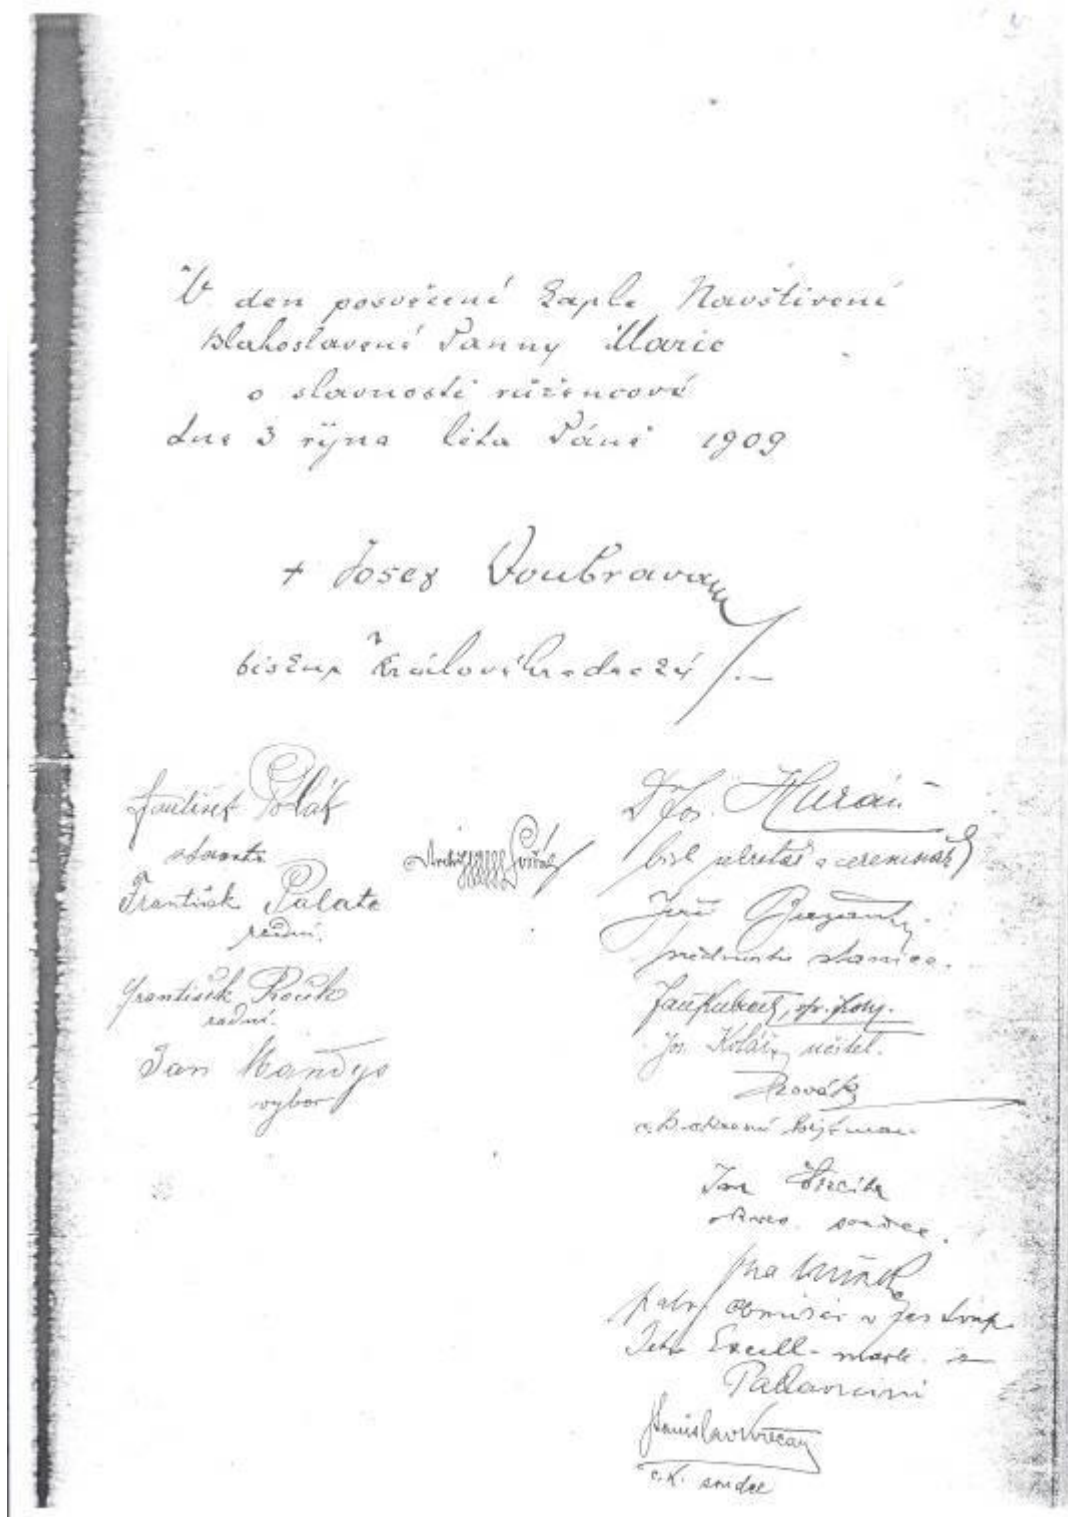 V den posvěcení kaple Navštívení
Blahoslavené Panny Marie
o slavnosti růžencové
dne 3 října léta Páně 1909
+ Josef Doubrava
biskup Královéhradecký
František Polák
starosta
František Palata
radní.
František
radní.
Jan Mandys
výbor
Dr Jos.
bisk. a ceremonář
Jiří
stanice.
Jos. Kolář, učitel.
Novák
c. k. okresní hejtman
Jan
okres. soudce.
Excell. z
Pallavicini
Stanislav
c. k. soudce